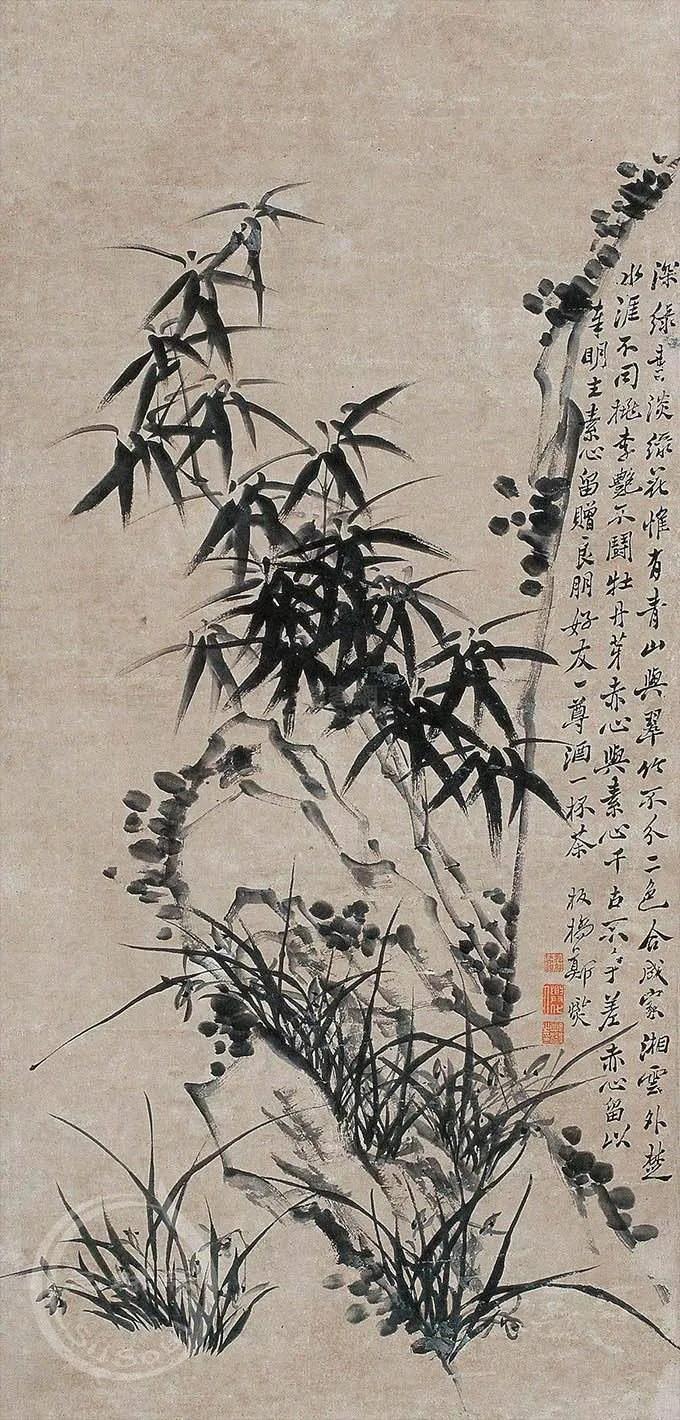 深綠叶淡綠花惟有青山與翠竹不分二色合成家湘雲外楚
水涯不同桃李艷不鬭牡丹芽赤心與素心千古不争差赤心留以
奉明主素心留贈良朋好友一尊酒一杯茶 板橋鄭燮